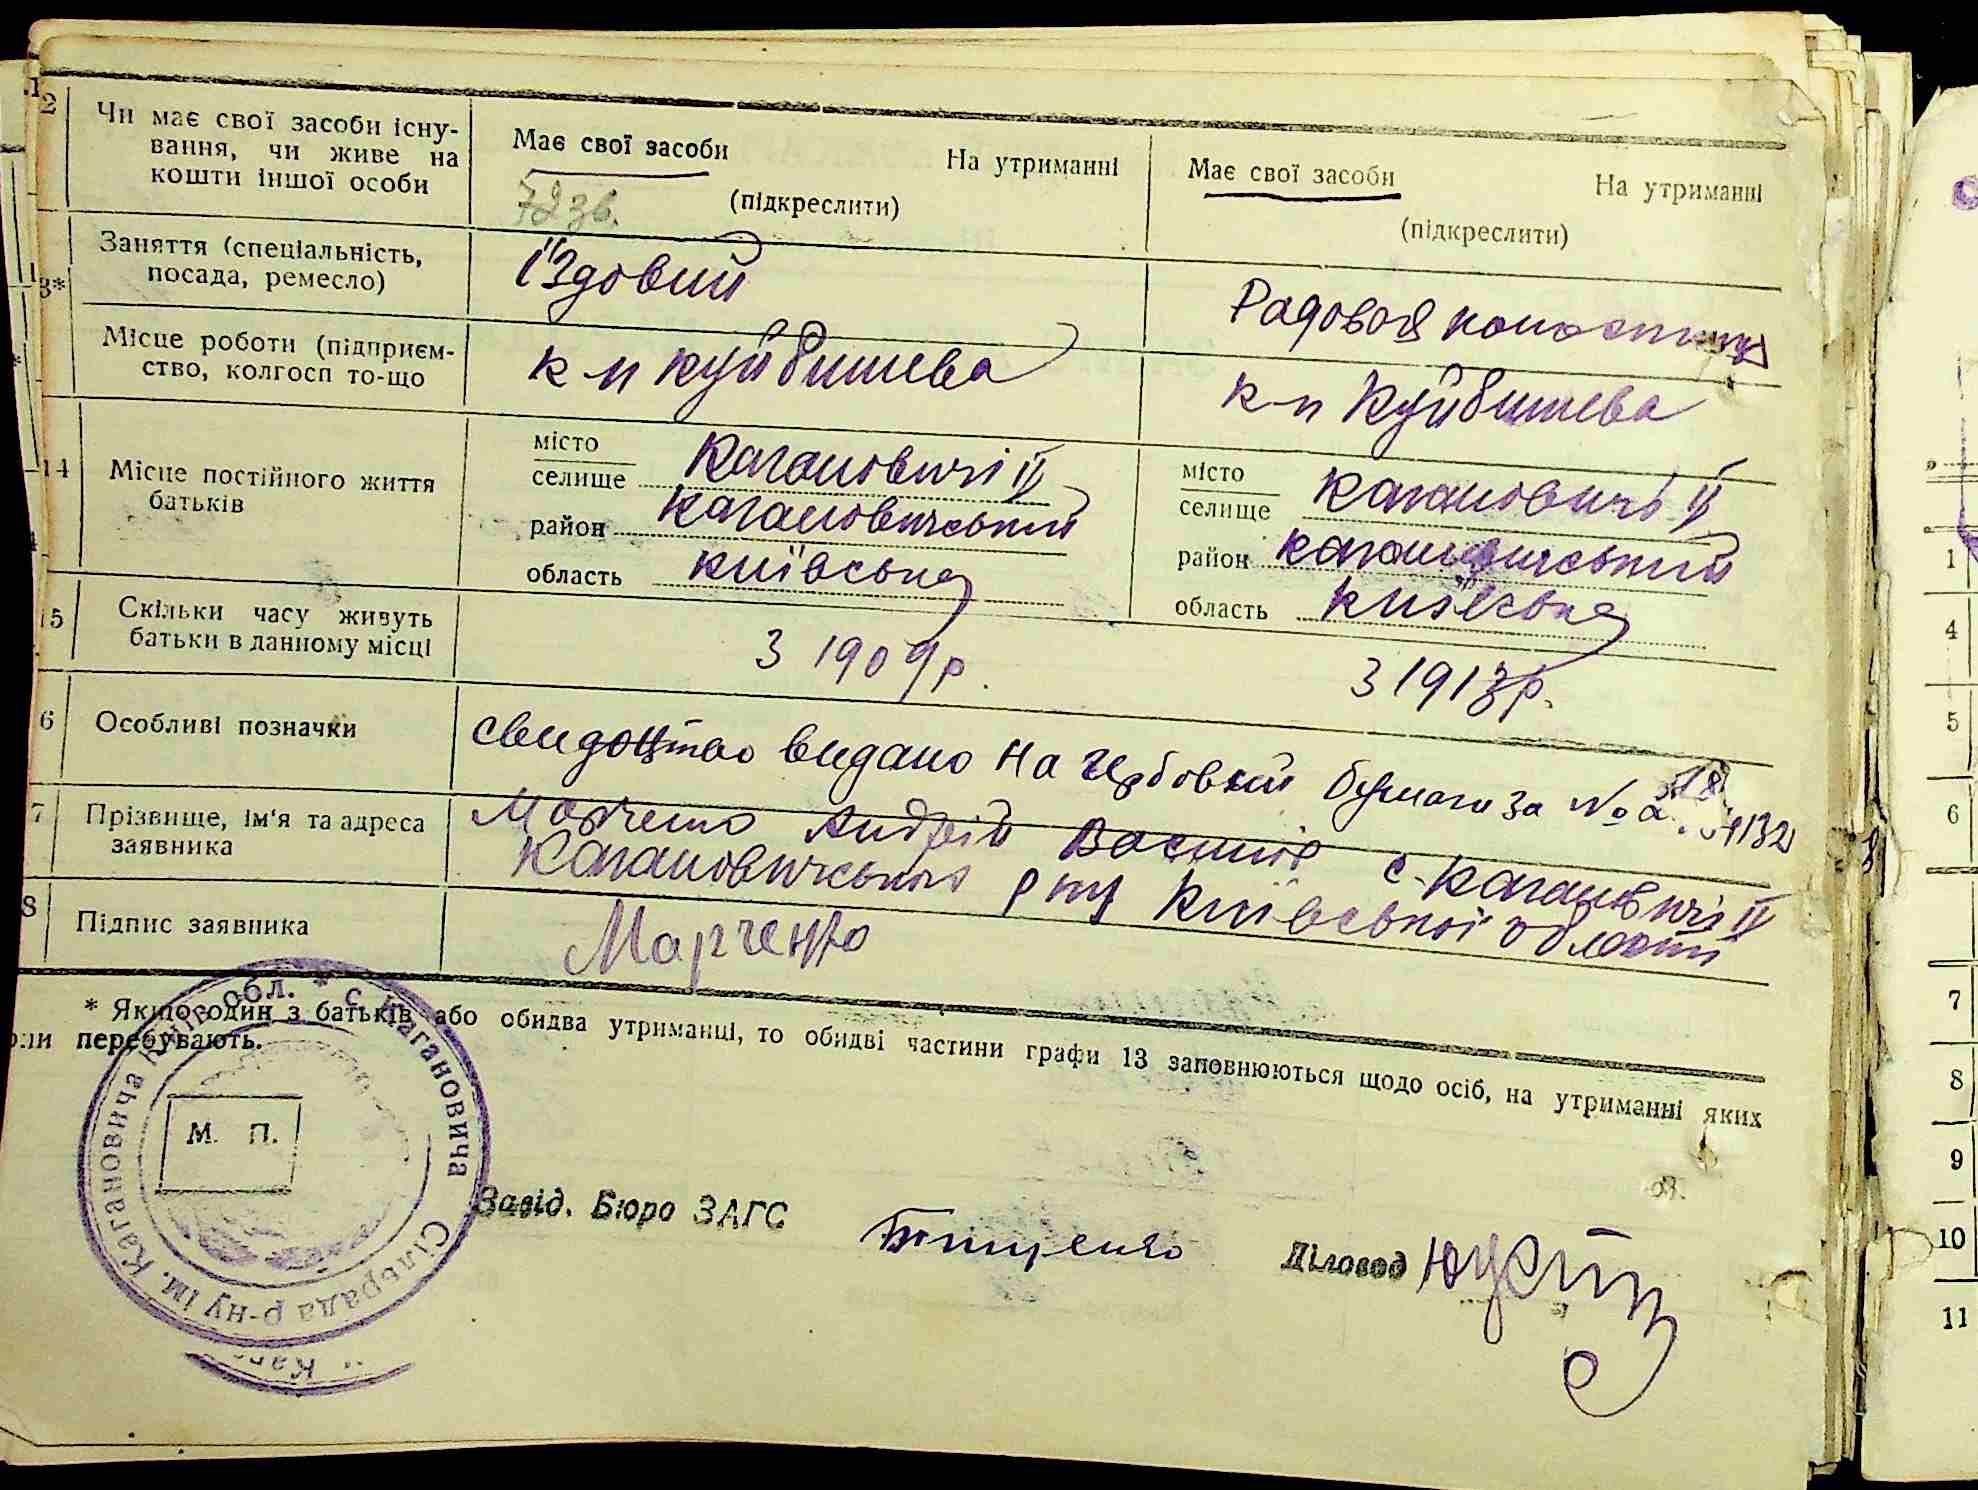 12 Чи має свої засоби існу-
вання, чи живе на
кошти іншої особи
Має свої засоби На утриманні
(підкреслити)
Має свої засоби На утриманні
(підкреслити)
72 зв.
13* Заняття (спеціальність,
посада, ремесло)
їздовий
Радовая
Місце роботи (підприєм-
ство, колгосп то-що
к-п Куйбишева
к-п Куйбишева
14 Місце постійного життя
батьків
місто
селище Кагановичі ІІ
район Кагановичський
область Київська
місто
селище Кагановичі ІІ
район Кагановичський
область Київська
15 Скільки часу живуть
батьки в данному місці
З 1909 р.
З 1913 р.
6 Особливі позначки
свидоцтво видано на гербовий бумаги за №
7 Прізвище, ім'я та адреса
заявника
Марченко Андрій с. Кагановичі ІІ
Кагановичського р-ну Київської області
8 Підпис заявника
Марченко
* Якщо один з батьків або обидва утриманці, то обидві частини графи 13 заповнюються щодо осіб, на утриманні яких
перебувають.
М. П.
с. Кагановича Сільрада р-ну ім. Кагановича Київ. обл. *
Завід. Бюро ЗАГС
Тищенко
Діловод
1
4
5
6
7
8
9
10
11